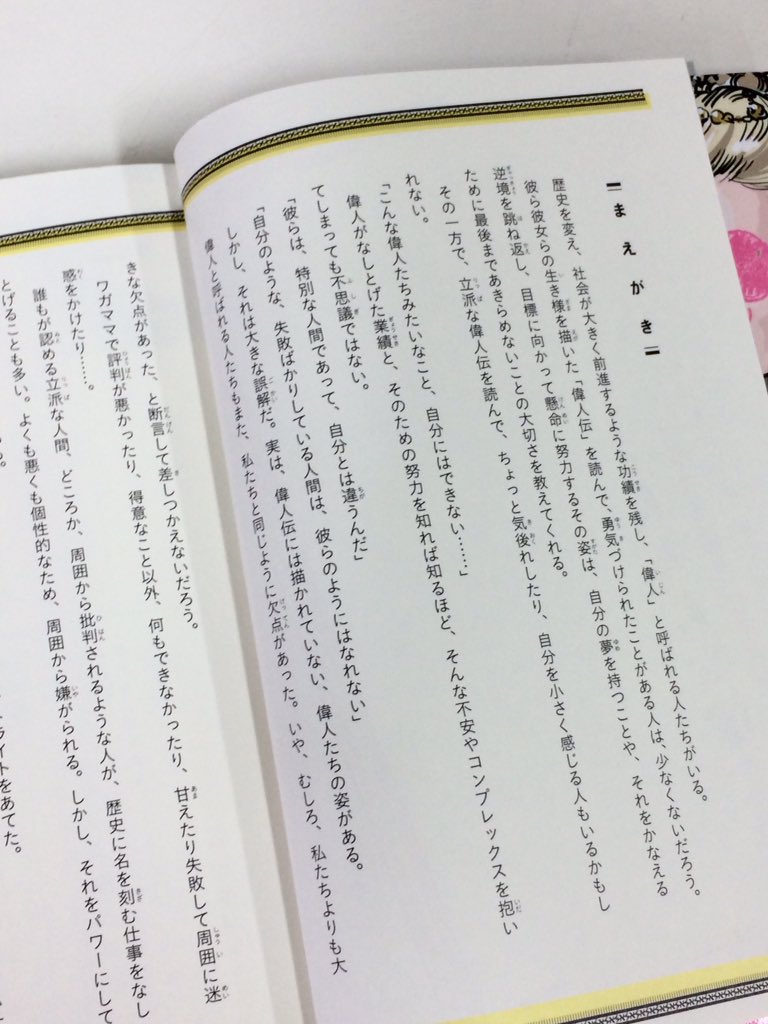 まえがき
歴史を変え、社会が大きく前進するような功績を残し、「偉人」と呼ばれる人たちがいる。
彼ら彼女らの生き様を描いた「偉人伝」を読んで、勇気づけられたことがある人は、少なくないだろう。
逆境を跳ね返し、目標に向かって懸命に努力するその姿は、自分の夢を持つことや、それをかなえる
ために最後まであきらめないことの大切さを教えてくれる。
その一方で、立派な偉人伝を読んで、ちょっと気後れしたり、自分を小さく感じる人もいるかもし
れない。
「こんな偉人たちみたいなこと、自分にはできない……」
偉人がなしとげた業績と、そのための努力を知れば知るほど、そんな不安やコンプレックスを抱い
てしまっても不思議ではない。
「彼らは、特別な人間であって、自分とは違うんだ」
「自分のような、失敗ばかりしている人間は、彼らのようにはなれない」
しかし、それは大きな誤解だ。実は、偉人伝には描かれていない、偉人たちの姿がある。
偉人と呼ばれる人たちもまた、私たちと同じように欠点があった。いや、むしろ、私たちよりも大
きな欠点があった、と断言して差しつかえないだろう。
ワガママで評判が悪かったり、得意なこと以外、何もできなかったり、甘えたり失敗して周囲に迷
惑をかけたり……。
誰もが認める立派な人間、どころか、周囲から批判されるような人が、歴史に名を刻む仕事をなし
とげることも多い。よくも悪くも個性的なため、周囲から嫌がられる。しかし、それをパワーにして
る。
ライトをあてた。